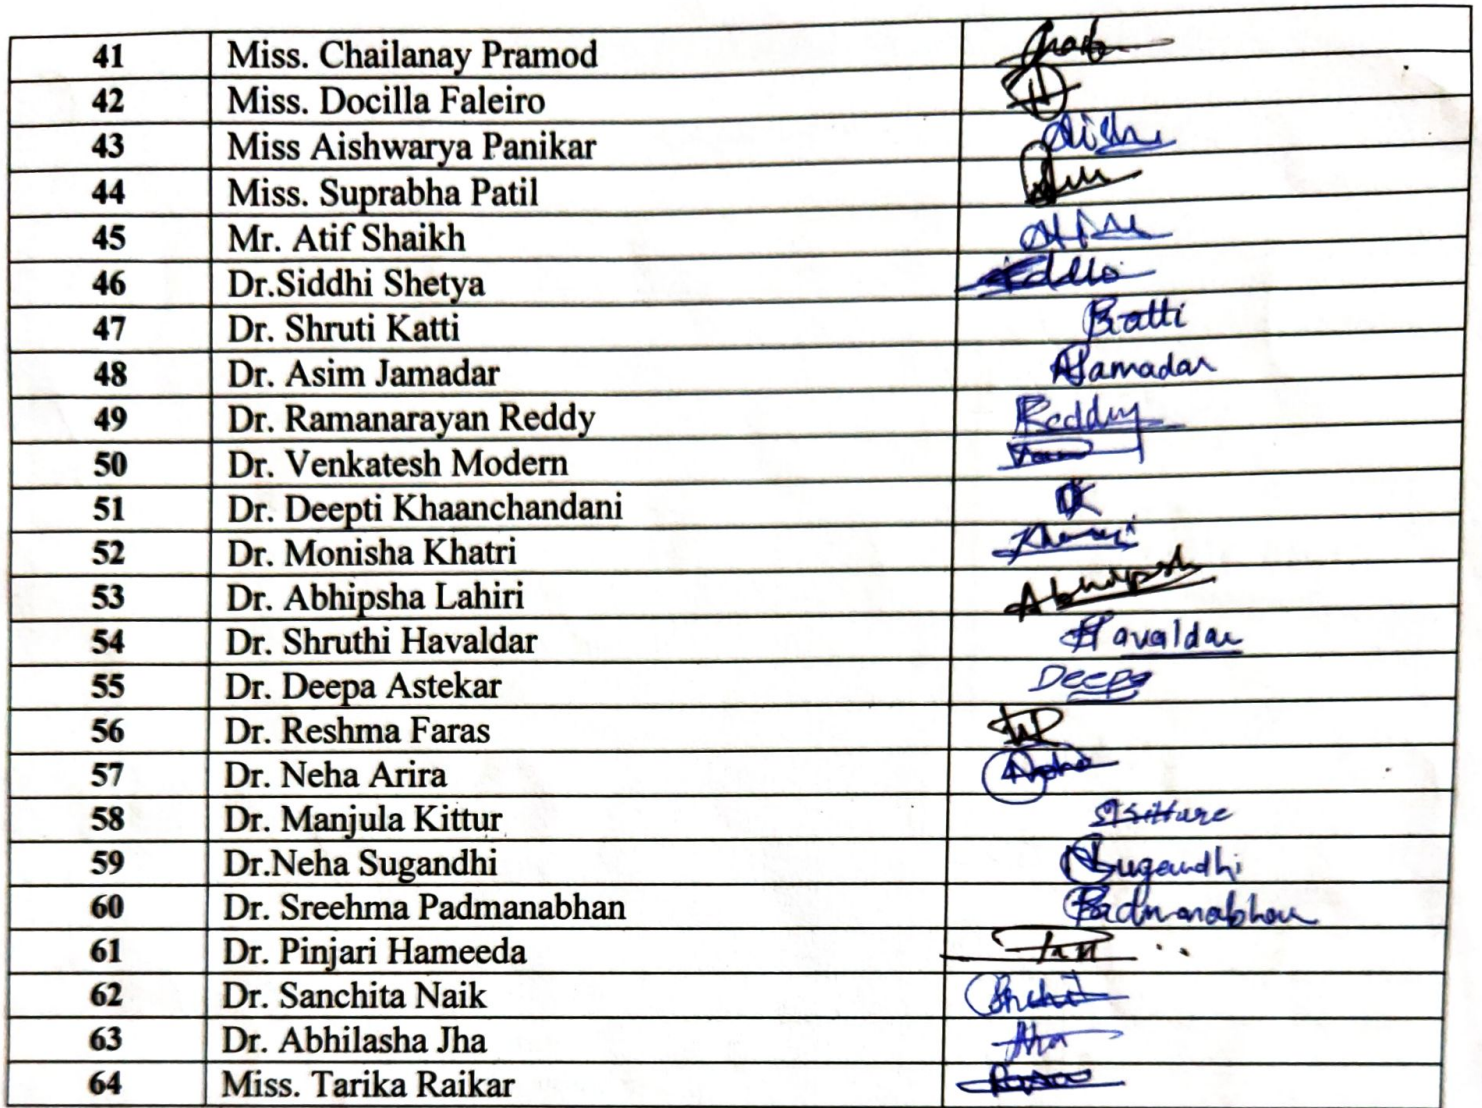 41 Miss. Chailanay Pramod
42 Miss. Docilla Faleiro
43 Miss Aishwarya Panikar
44 Miss. Suprabha Patil
45 Mr. Atif Shaikh
46 Dr.Siddhi Shetya
47 Dr. Shruti Katti Katti
48 Dr. Asim Jamadar AJamadar
49 Dr. Ramanarayan Reddy Reddy
50 Dr. Venkatesh Modern
51 Dr. Deepti Khaanchandani DK
52 Dr. Monisha Khatri
53 Dr. Abhipsha Lahiri Abhipsha
54 Dr. Shruthi Havaldar Havaldar
55 Dr. Deepa Astekar Deepa
56 Dr. Reshma Faras
57 Dr. Neha Arira Neha
58 Dr. Manjula Kittur
59 Dr.Neha Sugandhi NSugandhi
60 Dr. Sreehma Padmanabhan Padmanabhan
61 Dr. Pinjari Hameeda
62 Dr. Sanchita Naik
63 Dr. Abhilasha Jha Jha
64 Miss. Tarika Raikar